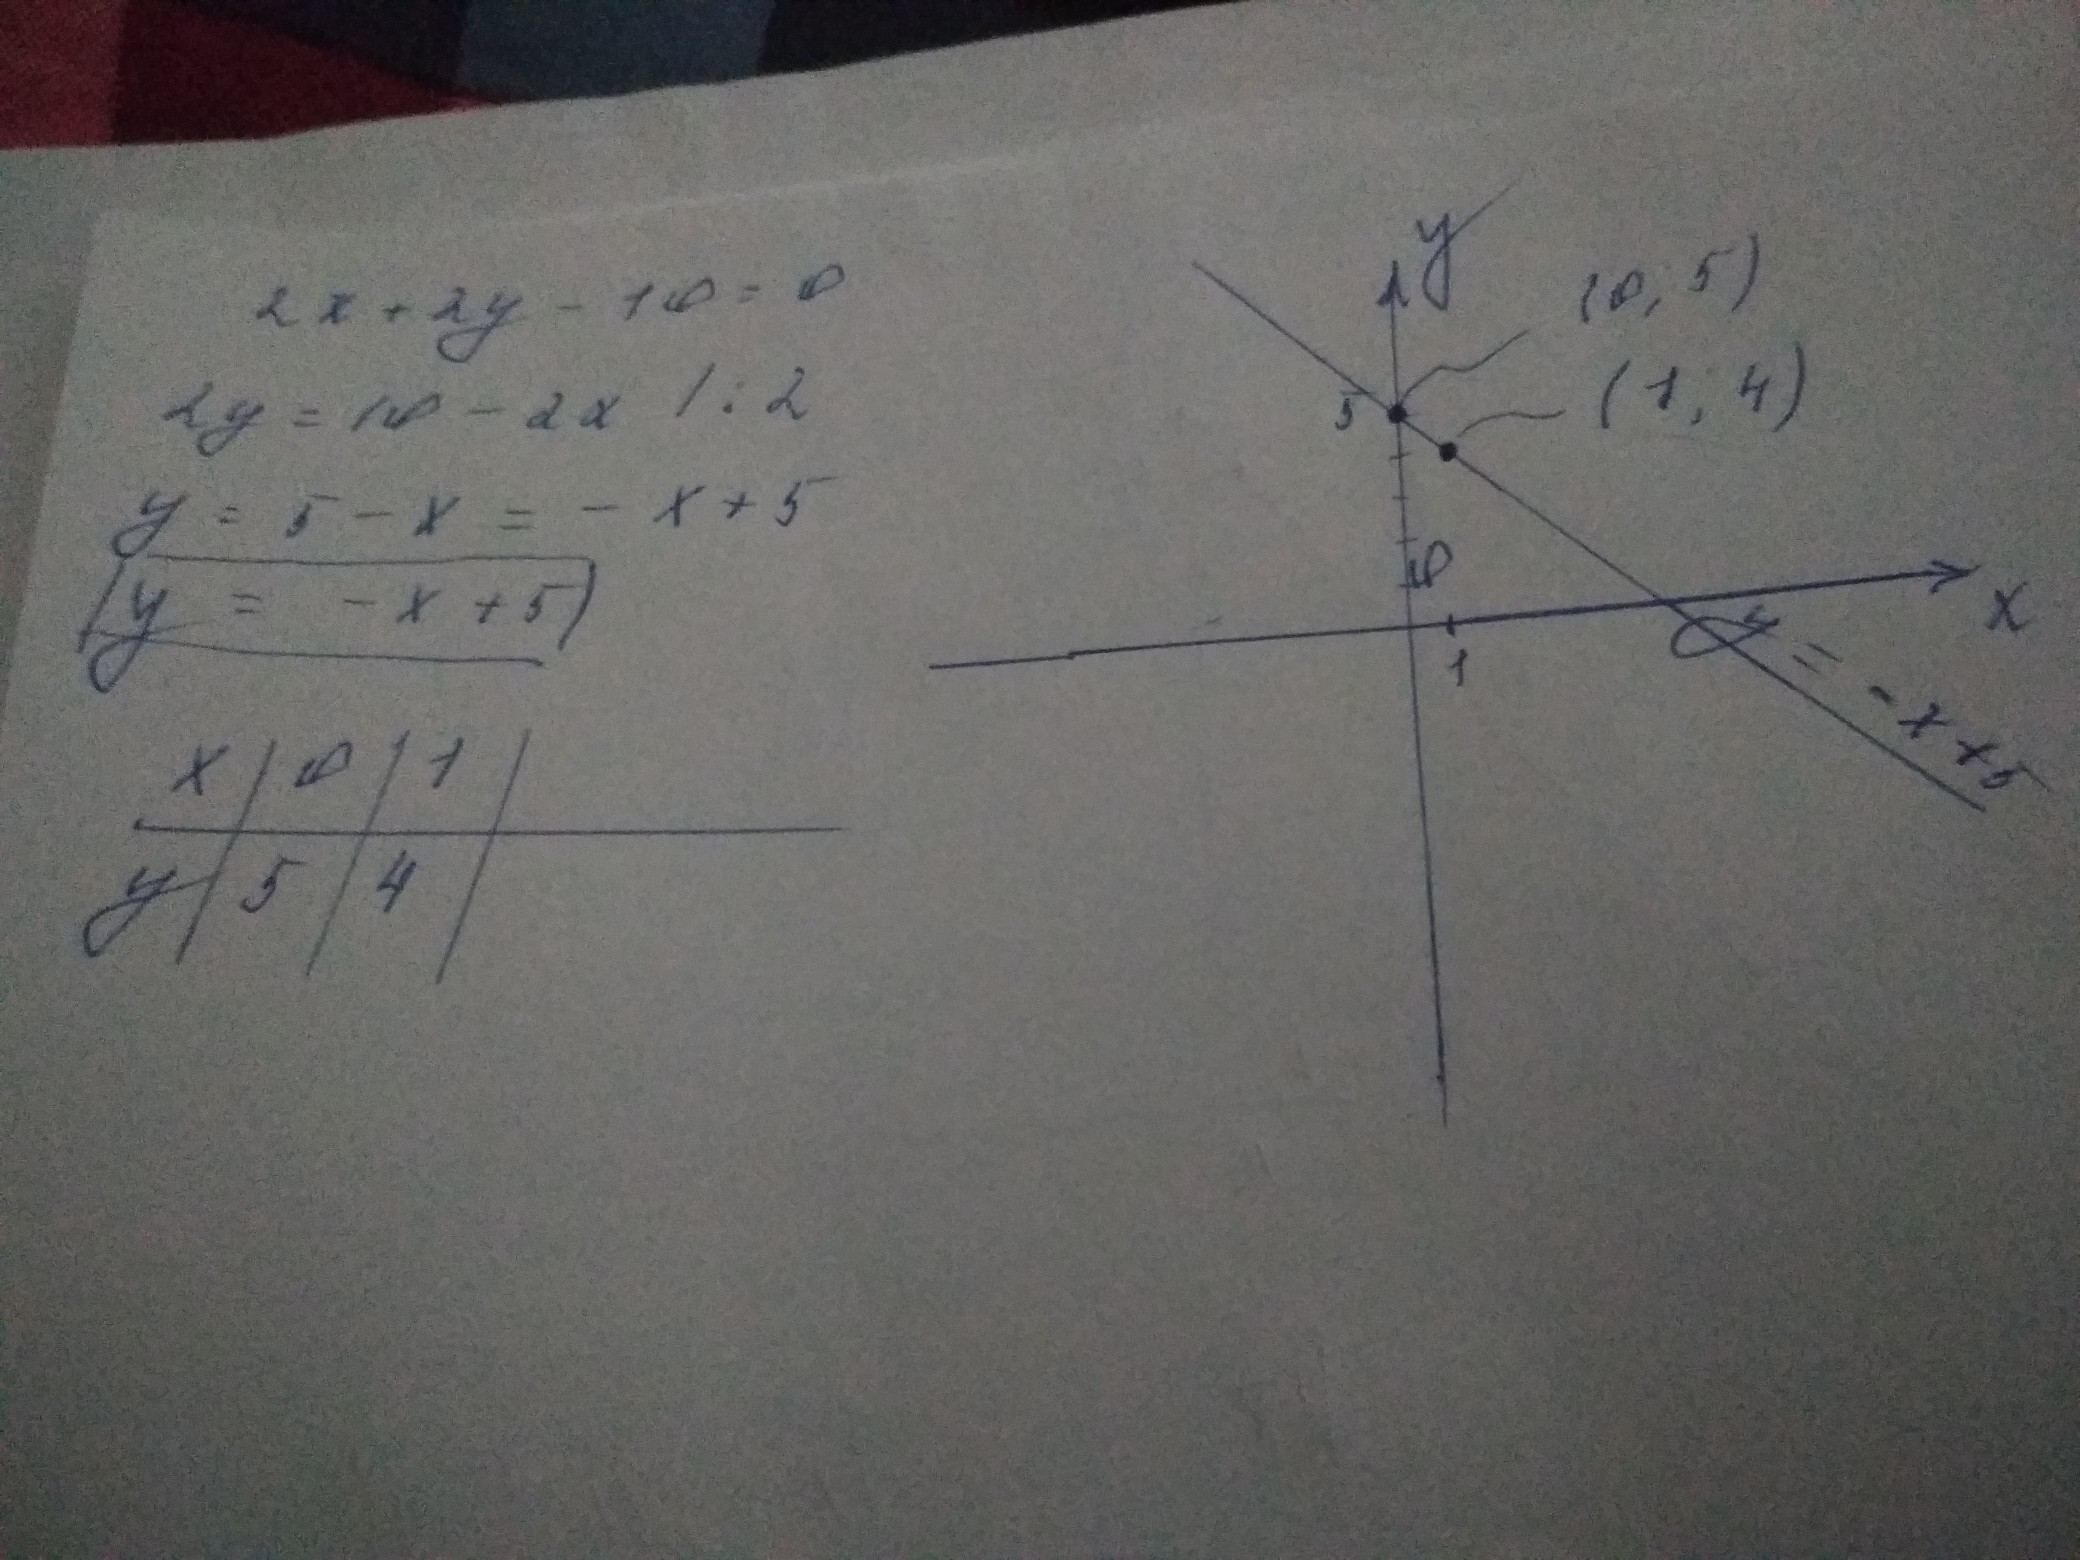 2x + 2y - 10 = 0
2y = 10 - 2x /:2
y = 5 - x = - x + 5
y = - x + 5
x | 0 | 1 |
y | 5 | 4 |
y
(0; 5)
(1; 4)
5
0
x
1
y = -x+5